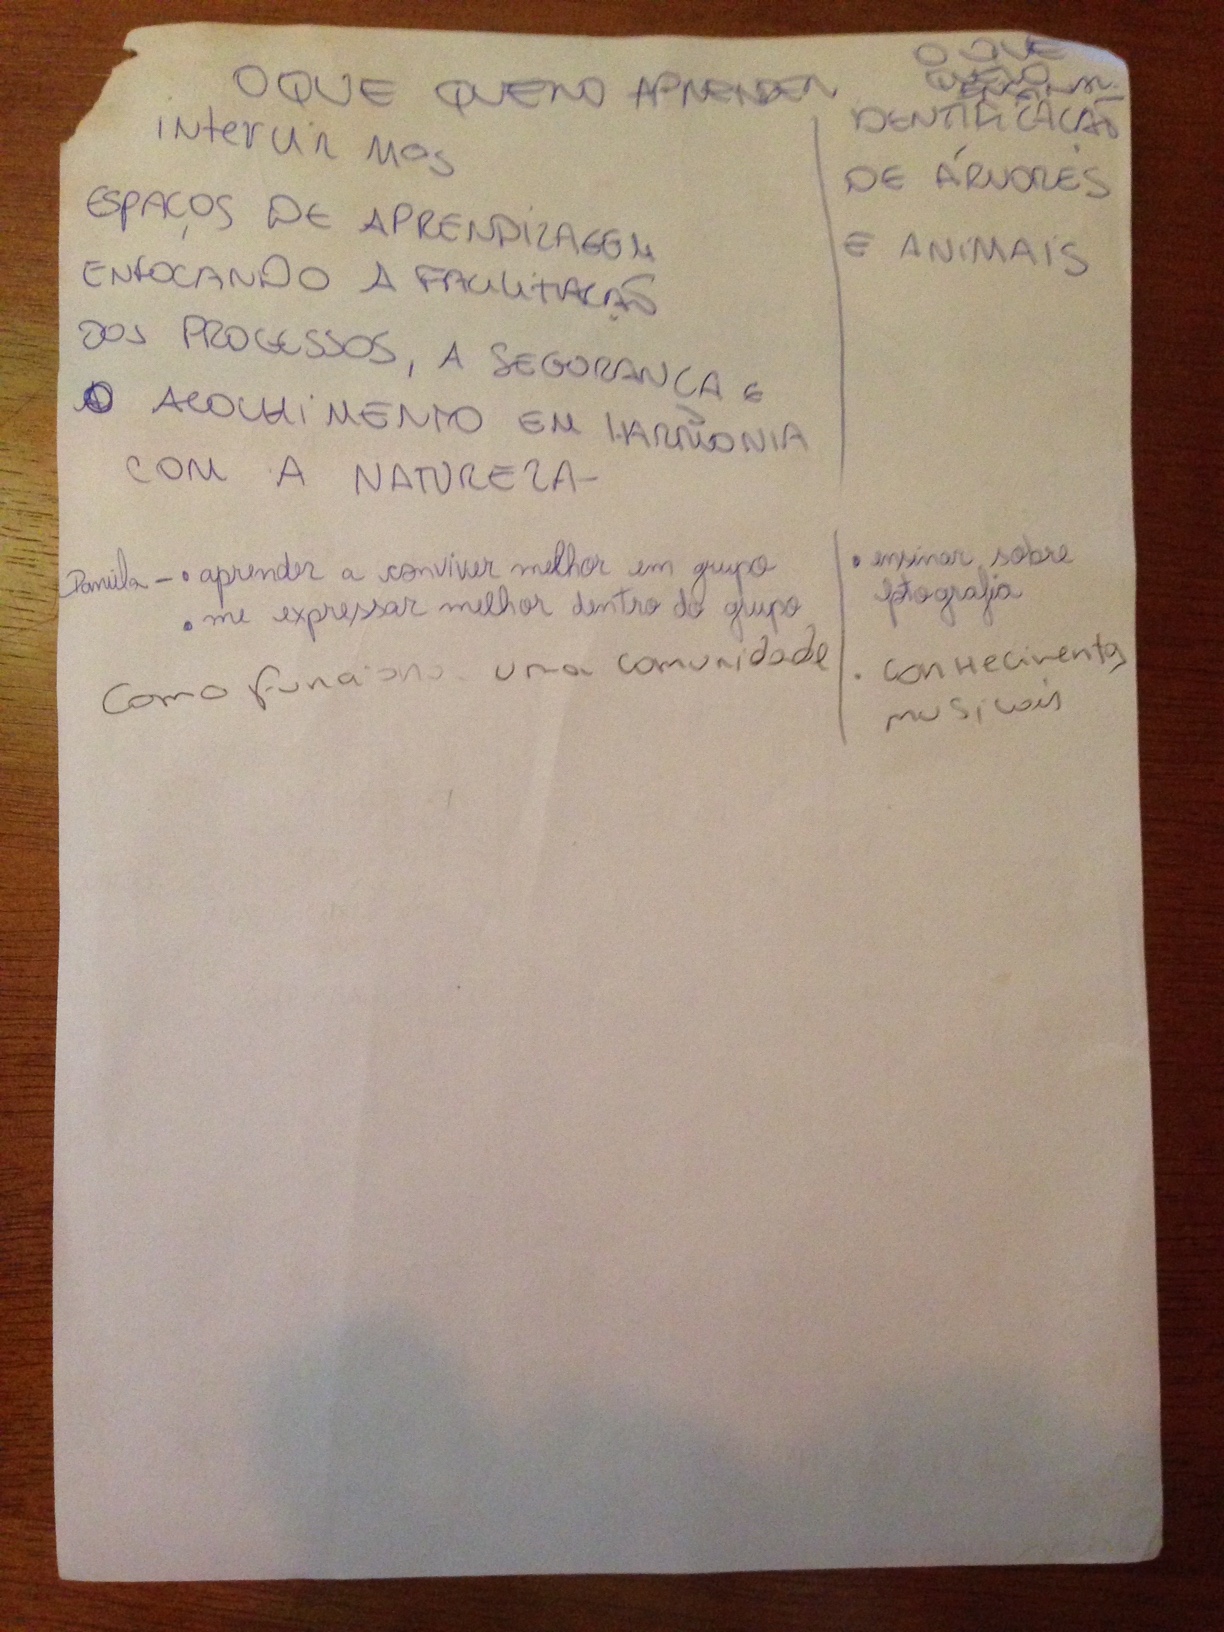 O QUE QUERO APRENDER
intervir nos
ESPAÇOS DE APRENDIZAGEM
ENFOCANDO A FACILITAÇÃO
DOS PROCESSOS, A SEGURANÇA E
O ACOLHIMENTO EM HARMONIA
COM A NATUREZA -
Daniela - • aprender a conviver melhor em grupo
• me expressar melhor dentro do grupo
Como funciona uma comunidade
O QUE
QUERO
ENSINAR
IDENTIFICAÇÃO
DE ÁRVORES
E ANIMAIS
• ensinar sobre
fotografia
• conhecimentos
musicais